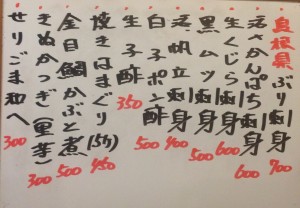 島根県ぶり刺身 700
活かんぱち刺身 600
生くじら刺身 600
黒ムツ刺身 500
活帆立刺身 400
白子ポン酢 500
生子酢 350
焼きはまぐり(5ヶ) 450
金目鯛かぶと煮 500
きぬかつぎ(里芋) 300
せりごま和へ 300